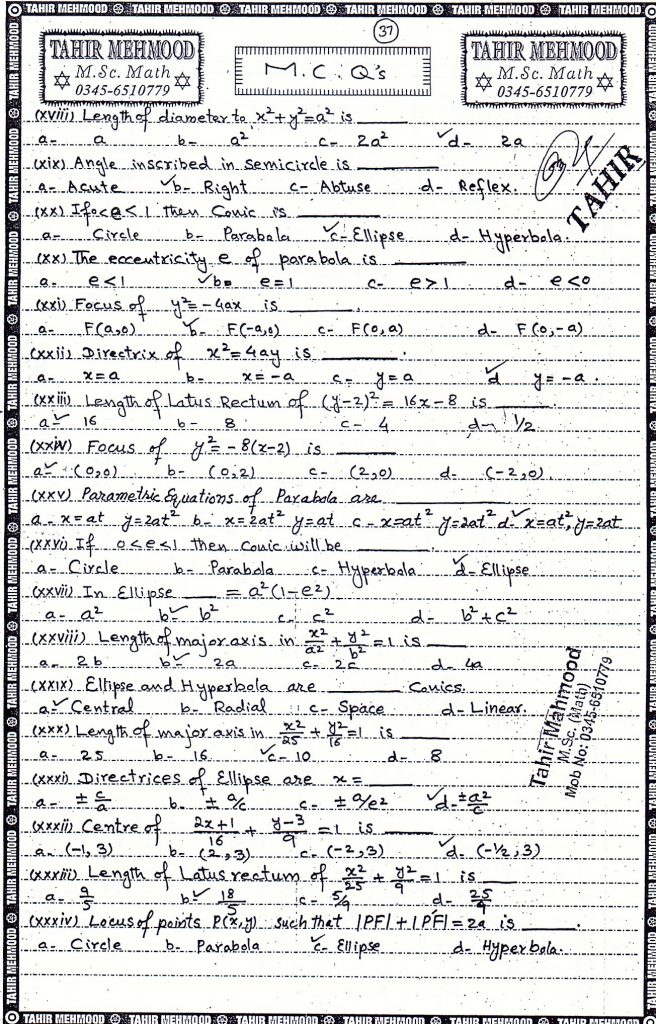 TAHIR MEHMOOD TAHIR MEHMOOD TAHIR MEHMOOD TAHIR MEHMOOD TAHIR MEHMOOD TAHIR MEHMOOD
37
TAHIR MEHMOOD
M.Sc. Math
0345-6510779
M.C.Q's
TAHIR MEHMOOD
M.Sc. Math
0345-6510779
(xviii) Length of diameter to x²+y²=a² is ______
a- a b- a² c- 2a² ✓d- 2a
(xix) Angle inscribed in semicircle is ______
a- Acute ✓b- Right c- Abtuse d- Reflex.
TAHIR
(xx) If 0<e<1 then Conic is ______
a- Circle b- Parabola ✓c- Ellipse d- Hyperbola.
(xx) The eccentricity e of parabola is ______
a. e<1 ✓b- e=1 c- e>1 d- e<0
(xxi) Focus of y²=-4ax is ______.
a- F(a,0) ✓b- F(-a,0) c- F(0,a) d- F(0,-a)
(xxii) Directrix of x²=4ay is ______.
a- x=a b- x=-a c- y=a ✓d y=-a.
(xxiii) Length of Latus Rectum of (y-2)²=16x-8 is ______.
a✓ 16 b- 8 c- 4 d- 1/2
(xxiv) Focus of y²=-8(x-2) is ______
a✓ (0,0) b- (0,2) c- (2,0) d- (-2,0).
(xxv) Parametric Equations of Parabola are ______
a- x=at y=2at² b- x=2at² y=at c- x=at² y=2at² d✓ x=at², y=2at
(xxvi) If 0<e<1 then conic will be ______.
a- Circle b- Parabola c- Hyperbola ✓d- Ellipse
(xxvii) In Ellipse ___ = a²(1-e²)
a- a² b✓ b² c- c² d- b²+c²
(xxviii) Length of major axis in x²/a² + y²/b² =1 is ______
a- 2b b✓ 2a c- 2c d- 4a
(xxix) Ellipse and Hyperbola are ______ Conics.
a✓ Central b- Radial c- Space d- Linear.
Tahir Mahmood
M.Sc. (Math)
Mob No: 0345-6510779
(xxx) Length of major axis in x²/25 + y²/16 =1 is ______
a- 25 b- 16 ✓c- 10 d- 8
(xxxi) Directrices of Ellipse are x= ______
a- ±c/a b. ±a/c c- ±a/e² ✓d- ±a²/c
(xxxii) Centre of 2x+1/16 + y-3/9 =1 is ______
a. (-1,3) b- (2,3) c. (-2,3) ✓d. (-1/2,3)
(xxxiii) Length of Latus rectum of x²/25 + y²/9 =1 is ______
a- 9/5 b✓ 18/5 c- 5/9 d- 25/9
(xxxiv) Locus of points P(x,y) such that |PF|+|PF|=2a is ______.
a- Circle b- Parabola ✓c- Ellipse d- Hyperbola.
TAHIR MEHMOOD TAHIR MEHMOOD TAHIR MEHMOOD TAHIR MEHMOOD TAHIR MEHMOOD TAHIR MEHMOOD